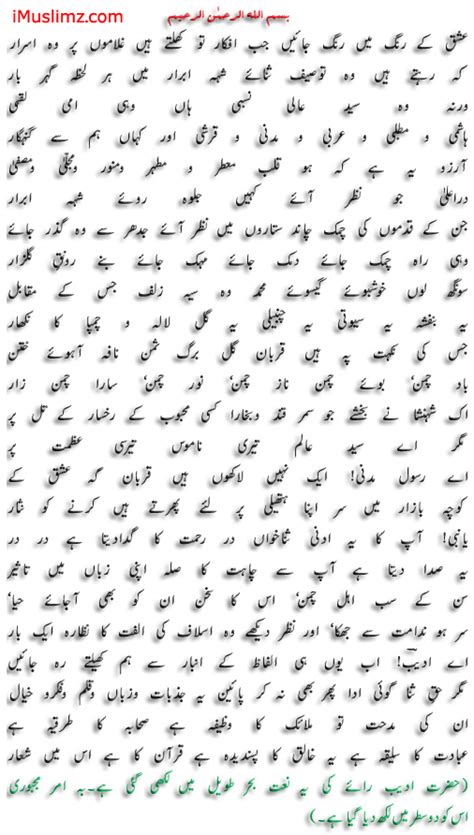 iMuslimz.com
بسم الله الرحمٰن الرحیم
عشق کے رنگ میں رنگ جائیں جب افکار تو کھلتے ہیں غلاموں پر وہ اسرار
کہ رہتے ہیں وہ توصیف ثنائے شہہ ابرار میں ہر لحظہ گہر بار
ورنہ وہ سید عالی نسبی ہاں وہی امی لقبی
ہاشمی و مطلبی و عربی و مدنی و قرشی اور کہاں ہم سے گنہگار
آرزو یہ ہے کہ ہو قلب معطر و مطہر ومنور ومجلّٰی ومصفّٰی
دراعلیٰ جو نظر آئے کہیں جلوہ روئے شہہ ابرار
جن کے قدموں کی چمک چاند ستاروں میں نظر آئے جدھر سے وہ گذر جائے
وہی راہ چمک جائے دمک جائے مہک جائے بنے رونق گلزار
سونگھ لوں خوشبوئے گیسوئے محمد وہ سیہ زلف جس کے مقابل
یہ بنفشہ یہ سیوتی یہ چنبیلی یہ گل لالہ و چمپا کا نکھار
جس کی نکہت پہ ہیں قربان گل برگ سمن نافہ آہوئے ختن
باد چمن‘ بوئے چمن ناز چمن‘ نور چمن‘ سارا چمن زار
اک شہنشا نے بخشے جو سمر قند وبخارا کسی محبوب کے رخسار کے تل پر
مگر اے سید عالم تیری ناموس تیری عظمت پر
اے رسول مدنی! ایک نہیں لاکھوں ہیں قربان گہ عشق کے
کوچہ بازار میں سر اپنا ہتھیلی پر لئے پھرتے ہیں کرنے کو نثار
یانبی! آپ کا یہ ادنی ثناخواں در رحمت کا گدادیتا ہے در در
یہ صدا دیتا ہے آپ سے چاہت کا صلہ اپنی زباں میں تاثیر
سن کے سب اہل چمن‘ اس کا سخن ان کو بھی آجائے حیا‘
سر ہو ندامت سے جھکا‘ اور نظر دیکھے وہ اسلاف کی الفت کا نظارہ ایک بار
اے ادیبؔ! اب یوں ہی الفاظ کے انبار سے ہم کھیلتے رہ جائیں
مگر حق ثنا گوئی ادا پھر بھی نہ کر پائین یہ جذبات وزباں وقلم وفکرو خیال
ان کی مدحت تو ملائک کا وظیفہ ہے صحابہ کا طریقہ ہے
عبادت کا سلیقہ ہے یہ خالق کا پسندیدہ ہے قرآن کا ہے اس میں شعار
(حضرت ادیب رائے کی یہ نعت بحر طویل میں لکھی گئی ہے۔بہ امر مجبوری
اس کو دو سطر میں لکھ دیا گیا ہے۔)